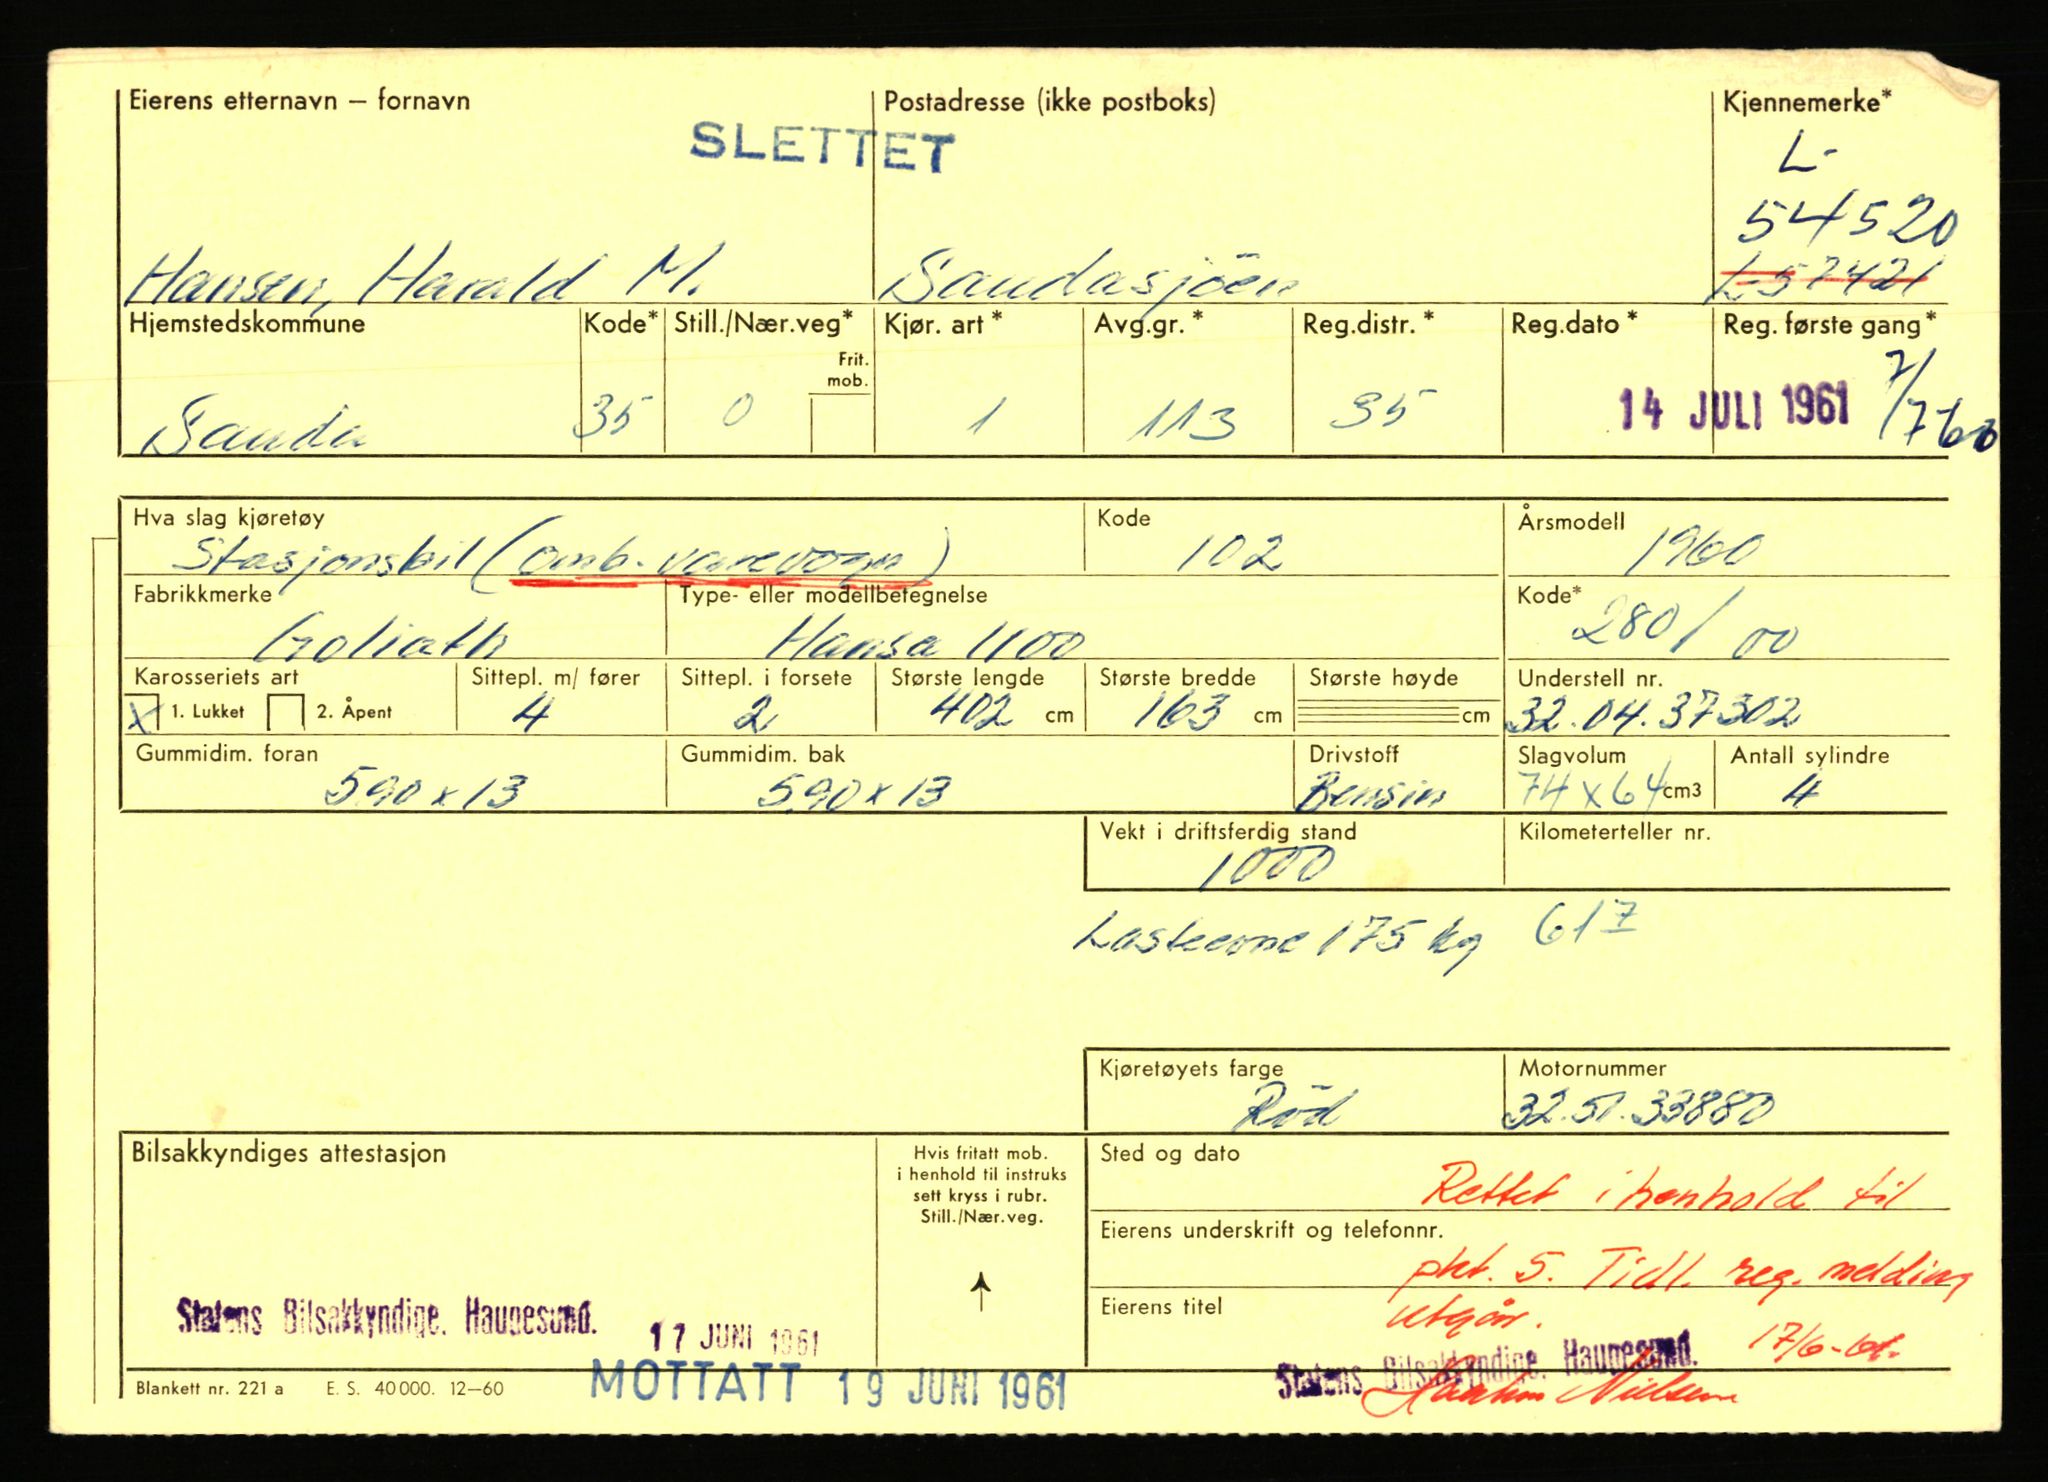 Eierens etternavn – fornavn Postadresse (ikke postboks) Kjennemerke*
SLETTET
L-
54520
Hansen, Harald M. Saudasjöen L-57421
Hjemstedskommune Kode* Still./Nær.veg* Kjør. art* Avg.gr.* Reg.distr.* Reg.dato* Reg. første gang*
Frit.
mob.
Sauda 35 0 1 113 35 14 JULI 1961 7/760
Hva slag kjøretøy Kode Årsmodell
Stasjonsbil (omb. varevogn) 102 1960
Fabrikkmerke Type- eller modellbetegnelse Kode*
Goliath Hansa 1100 280/00
Karosseriets art Sittepl. m/ fører Sittepl. i forsete Største lengde Største bredde Største høyde Understell nr.
X 1. Lukket 2. Åpent 4 2 402 cm 163 cm cm 32.04.37302
Gummidim. foran Gummidim. bak Drivstoff Slagvolum Antall sylindre
590 x 13 590 x 13 Bensin 74 x 64 cm3 4
Vekt i driftsferdig stand Kilometerteller nr.
1000
Lasteevne 175 kg 617
Kjøretøyets farge Motornummer
Röd 32.51.33880
Bilsakkyndiges attestasjon Hvis fritatt mob.
i henhold til instruks
sett kryss i rubr.
Still./Nær.veg.
Sted og dato
Rettet i henhold til
Eierens underskrift og telefonnr.
pkt. 5. Tidl. reg. melding
Eierens titel
utgår.
17/6-61.
Statens Bilsakkyndige. Haugesund.
17 JUNI 1961
Statens Bilsakkyndige. Haugesund.
Haakon Nielsen
MOTTATT 19 JUNI 1961
Blankett nr. 221 a E. S. 40 000. 12–60